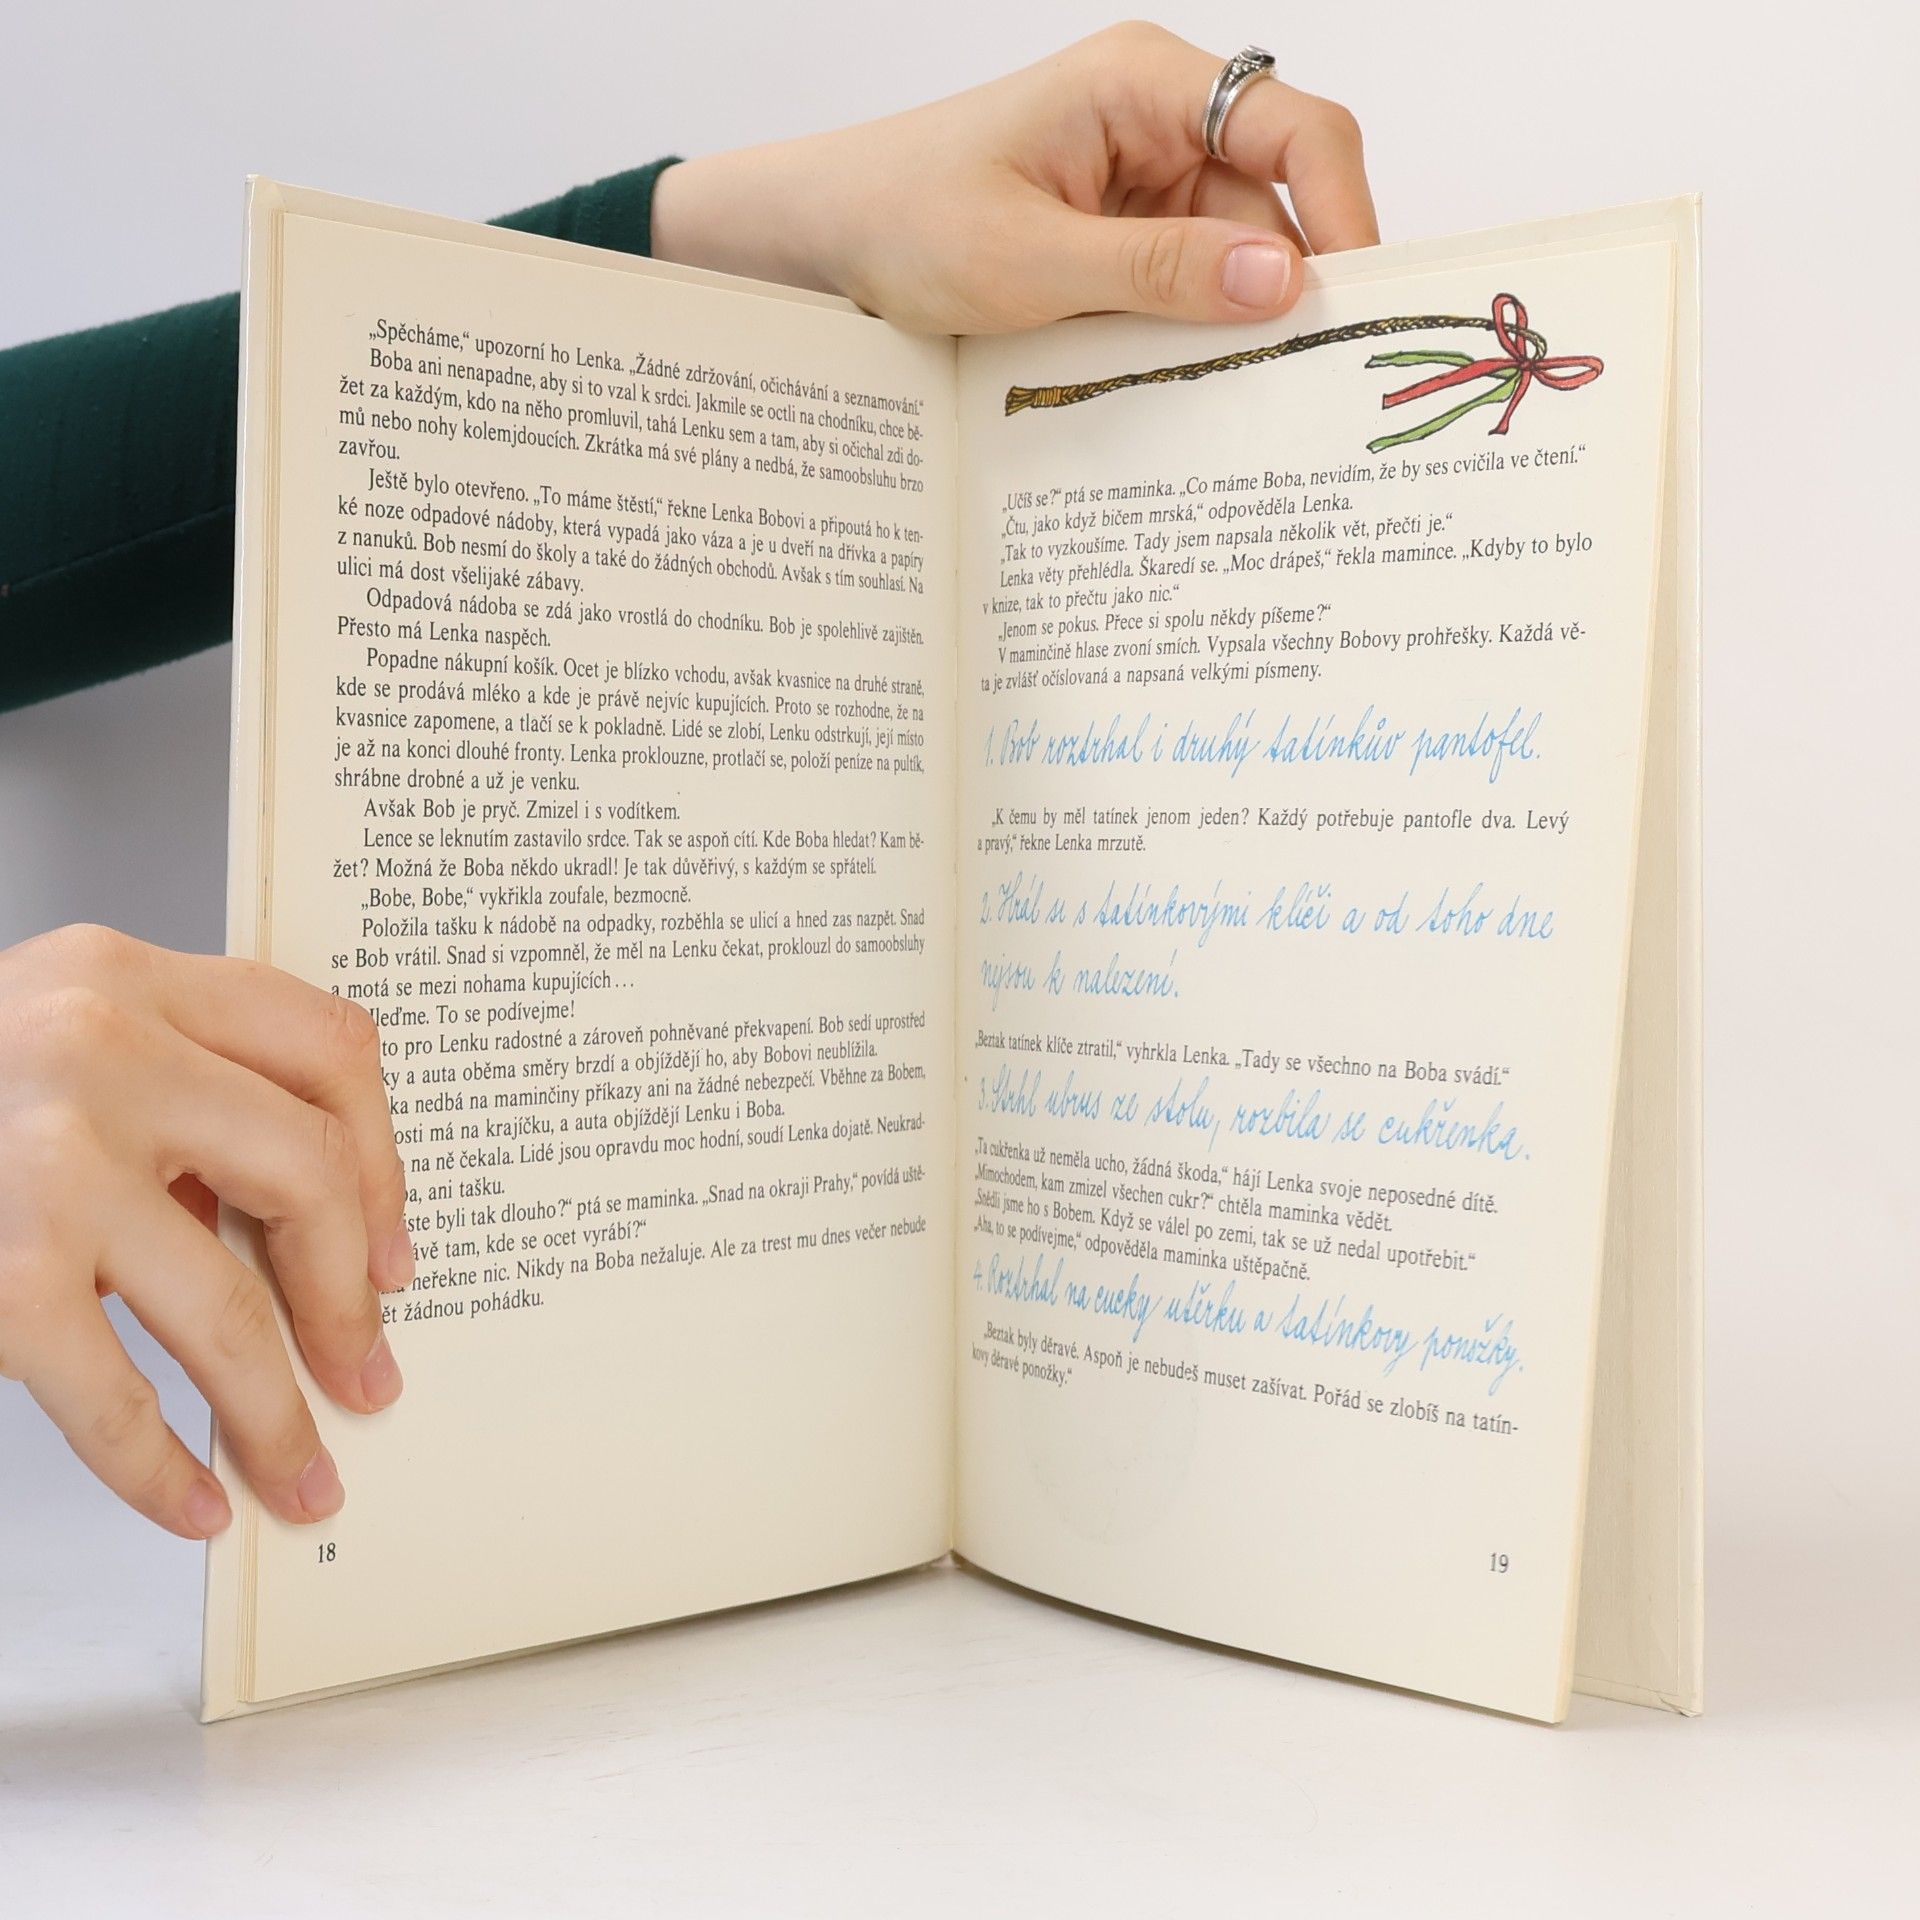 „Spěcháme,“ upozorní ho Lenka. „Žádné zdržování, očichávání a seznamování.“
Boba ani nenapadne, aby si to vzal k srdci. Jakmile se octli na chodníku, chce bě-
žet za každým, kdo na něho promluvil, tahá Lenku sem a tam, aby si očichal zdi do-
mů nebo nohy kolemjdoucích. Zkrátka má své plány a nedbá, že samoobsluhu brzo
zavřou.
Ještě bylo otevřeno. „To máme štěstí,“ řekne Lenka Bobovi a připoutá ho k ten-
ké noze odpadové nádoby, která vypadá jako váza a je u dveří na dřívka a papíry
z nanuků. Bob nesmí do školy a také do žádných obchodů. Avšak s tím souhlasí. Na
ulici má dost všelijaké zábavy.
Odpadová nádoba se zdá jako vrostlá do chodníku. Bob je spolehlivě zajištěn.
Přesto má Lenka naspěch.
Popadne nákupní košík. Ocet je blízko vchodu, avšak kvasnice na druhé straně,
kde se prodává mléko a kde je právě nejvíc kupujících. Proto se rozhodne, že na
kvasnice zapomene, a tlačí se k pokladně. Lidé se zlobí, Lenku odstrkují, její místo
je až na konci dlouhé fronty. Lenka proklouzne, protlačí se, položí peníze na pultík,
shrábne drobné a už je venku.
Avšak Bob je pryč. Zmizel i s vodítkem.
Lence se leknutím zastavilo srdce. Tak se aspoň cítí. Kde Boba hledat? Kam bě-
žet? Možná že Boba někdo ukradl! Je tak důvěřivý, s každým se spřátelí.
„Bobe, Bobe,“ vykřikla zoufale, bezmocně.
Položila tašku k nádobě na odpadky, rozběhla se ulicí a hned zas nazpět. Snad
se Bob vrátil. Snad si vzpomněl, že měl na Lenku čekat, proklouzl do samoobsluhy
a motá se mezi nohama kupujících...
leďme. To se podívejme!
to pro Lenku radostné a zároveň pohněvané překvapení. Bob sedí uprostřed
ky a auta oběma směry brzdí a objíždějí ho, aby Bobovi neublížila.
ka nedbá na maminčiny příkazy ani na žádné nebezpečí. Vběhne za Bobem,
osti má na krajíčku, a auta objíždějí Lenku i Boba.
na ně čekala. Lidé jsou opravdu moc hodní, soudí Lenka dojatě. Neukrad-
ba, ani tašku.
jste byli tak dlouho?“ ptá se maminka. „Snad na okraji Prahy,“ povídá uště-
ávě tam, kde se ocet vyrábí?“
neřekne nic. Nikdy na Boba nežaluje. Ale za trest mu dnes večer nebude
ět žádnou pohádku.
18
„Učíš se?“ ptá se maminka. „Co máme Boba, nevidím, že by ses cvičila ve čtení.“
„Čtu, jako když bičem mrská,“ odpověděla Lenka.
„Tak to vyzkoušíme. Tady jsem napsala několik vět, přečti je.“
Lenka věty přehlédla. Škaredí se. „Moc drápeš,“ řekla mamince. „Kdyby to bylo
v knize, tak to přečtu jako nic.“
„Jenom se pokus. Přece si spolu někdy píšeme?“
V maminčině hlase zvoní smích. Vypsala všechny Bobovy prohřešky. Každá vě-
ta je zvlášť očíslovaná a napsaná velkými písmeny.
1. Bob roztrhal i druhý tatínkův pantofel.
„K čemu by měl tatínek jenom jeden? Každý potřebuje pantofle dva. Levý
a pravý,“ řekne Lenka mrzutě.
2. Hrál si s tatínkovými klíči a od toho dne
nejsou k nalezení.
„Beztak tatínek klíče ztratil,“ vyhrkla Lenka. „Tady se všechno na Boba svádí.“
3. Strhl ubrus ze stolu, rozbila se cukřenka.
„Ta cukřenka už neměla ucho, žádná škoda,“ hájí Lenka svoje neposedné dítě.
„Mimochodem, kam zmizel všechen cukr?“ chtěla maminka vědět.
„Snědli jsme ho s Bobem. Když se válel po zemi, tak se už nedal upotřebit.“
„Aha, to se podívejme,“ odpověděla maminka uštěpačně.
4. Roztrhal na cucky utěrku a tatínkovy ponožky.
„Beztak byly děravé. Aspoň je nebudeš muset zašívat. Pořád se zlobíš na tatín-
kovy děravé ponožky.“
19